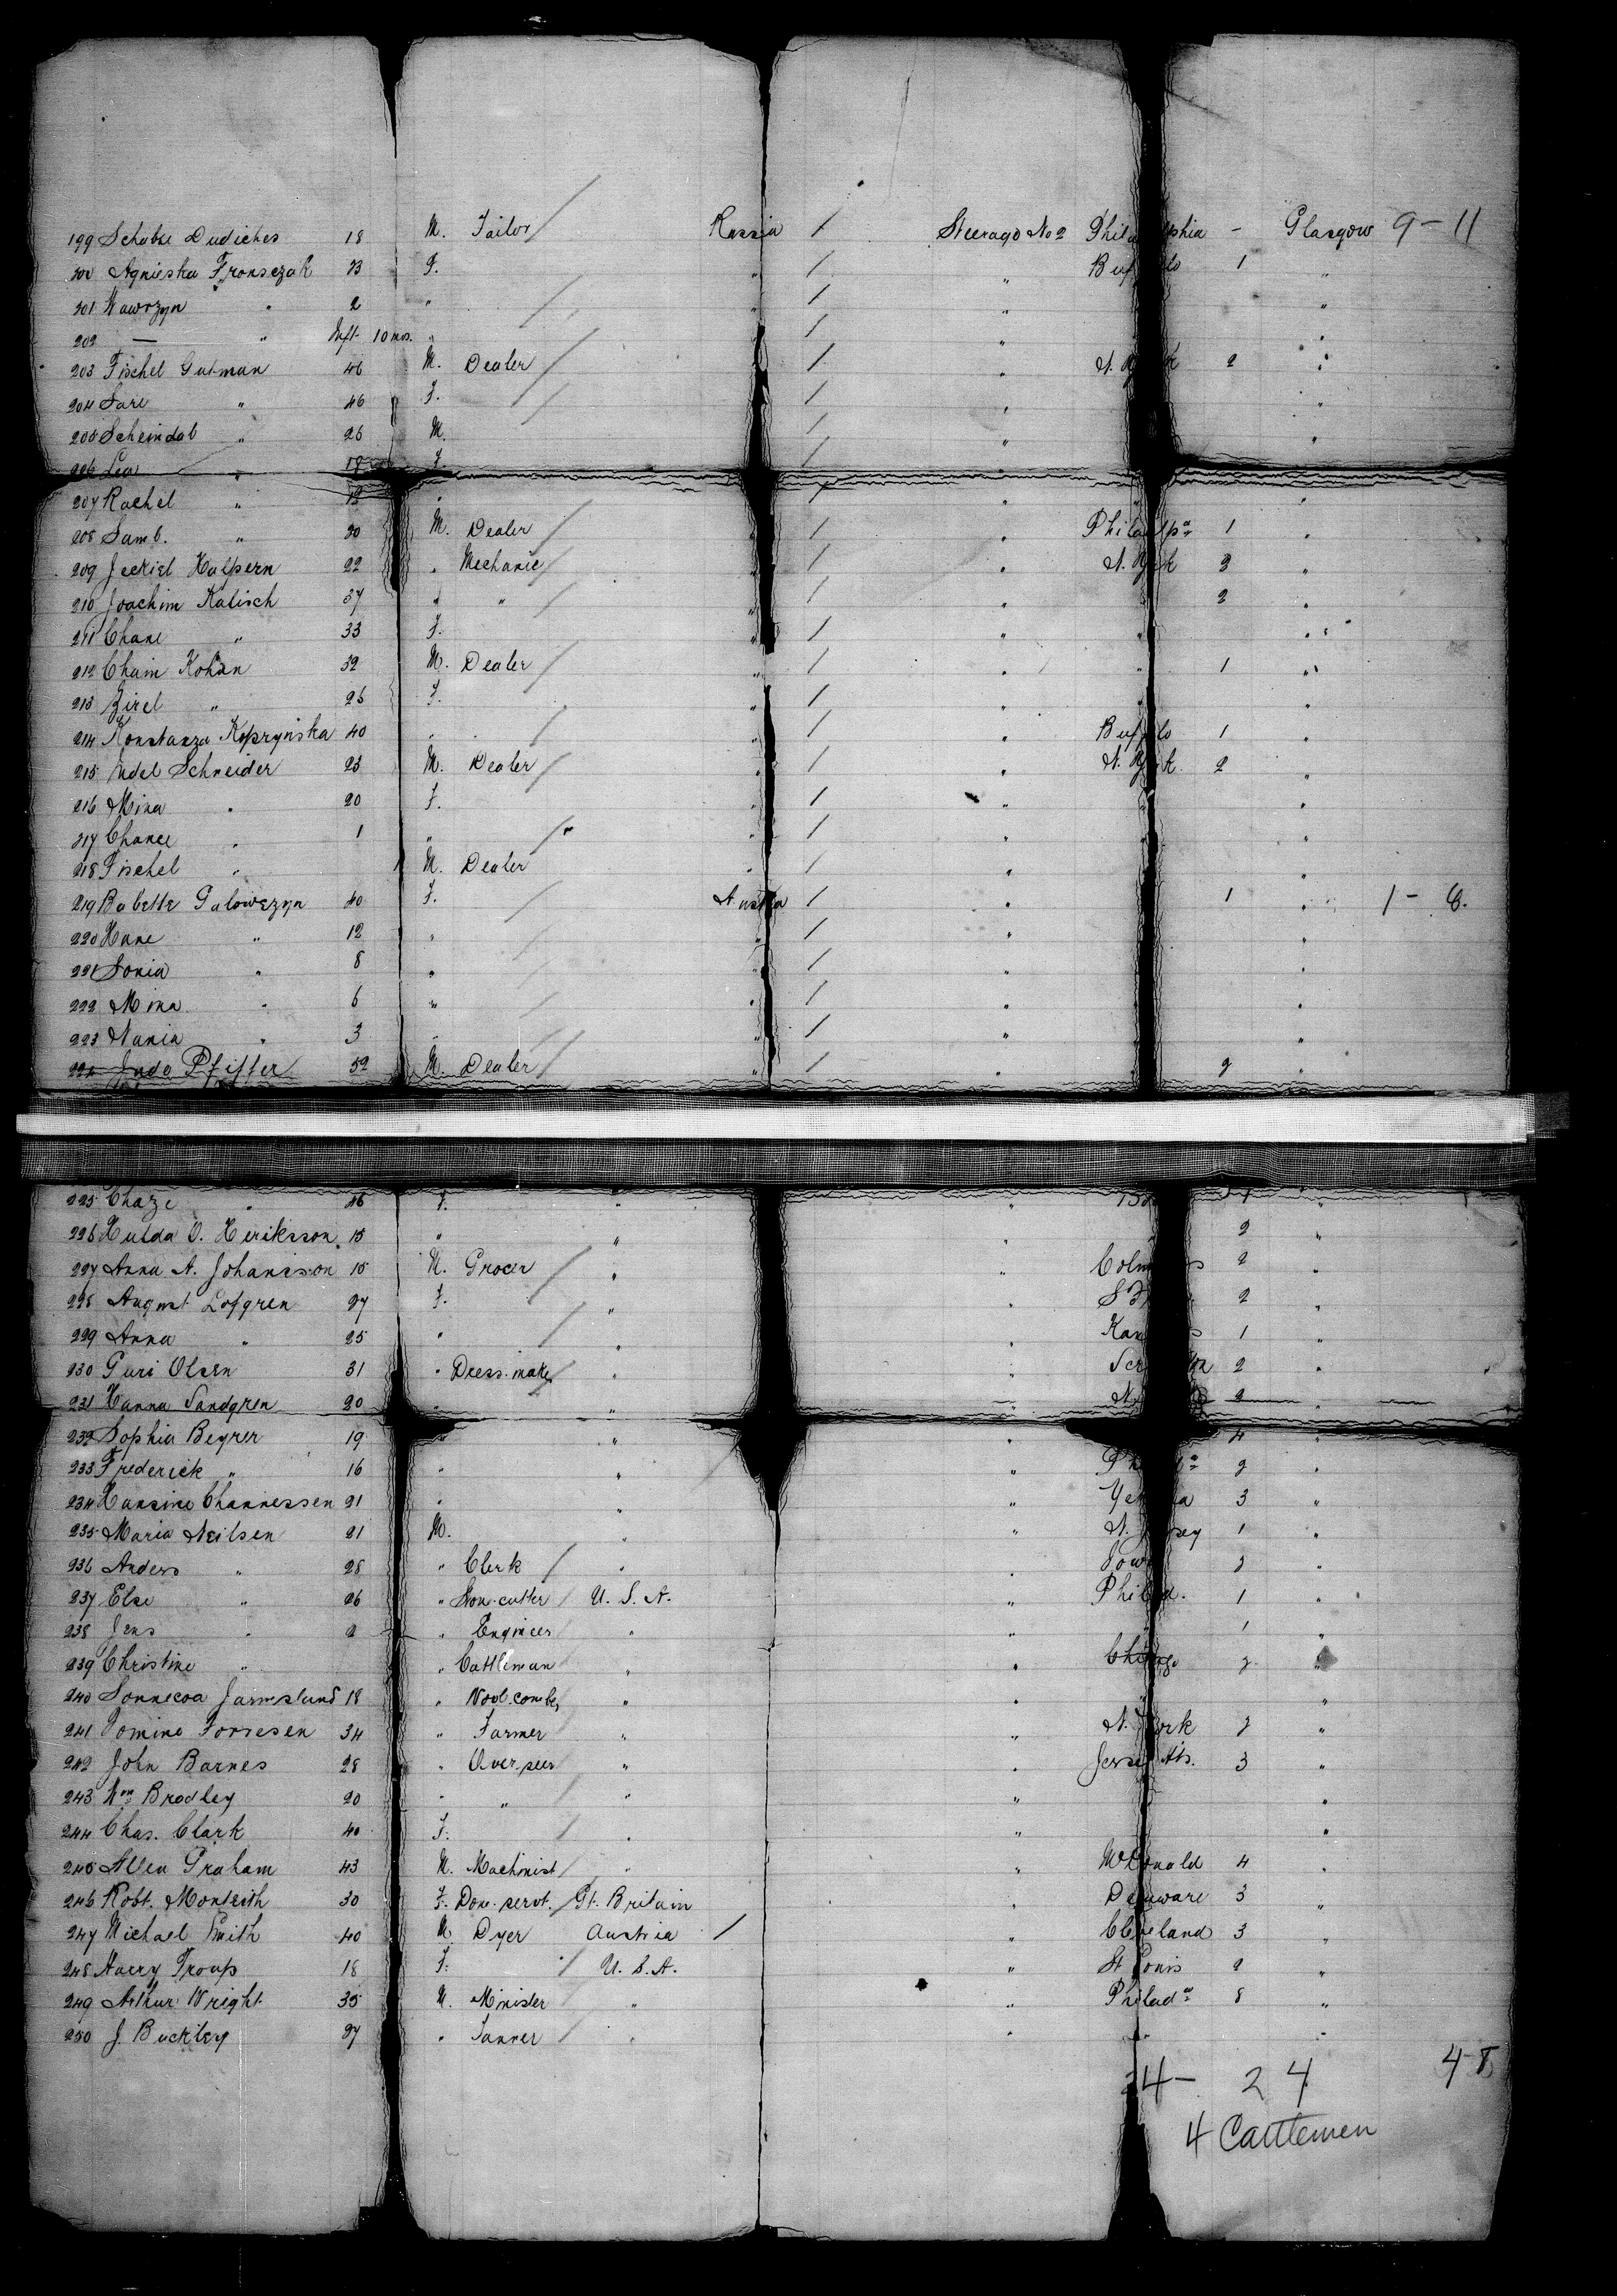 199 Schabse Dudiches 18 M. Tailor Russia / Steerage No 2 Philadelphia - Glasgow 9 - 11
200 Agnieska Fronsczak 23 F. " / " Buffalo 1 "
201 Wawrzyn " 2 " " / " "
202 — " Inft. 10 mos. " " / " "
203 Fischel Gutman 46 M. Dealer " / " N. York 2 "
204 Sare " 46 F. " / " "
205 Scheindal " 26 M. " / " "
206 Lea " 18 F. /
207 Rachel " 12 " / " " "
208 Samb. " 30 M. Dealer " / " Philadpa 1 "
209 Jeckiel Halpern 22 " Mechanic " / " N. York 3 "
210 Joachim Kalisch 37 " " " / " " 2 "
211 Chane " 33 F. " / " " "
212 Chaim Kohan 32 M. Dealer " / " " 1 "
213 Zirel " 26 F. " / " " "
214 Konstanza Koprzynska 40 " " / " Buffalo 1 "
215 Judel Schneider 23 M. Dealer " / " N. York 2 "
216 Mina " 20 F. " / " " "
217 Chance " 1 " " / " " "
218 Fischel " M. Dealer " / " "
219 Babette Galowezyn 40 F. Austria / " 1 " 1 - 6.
220 Hane " 12 " " / " "
221 Sonia " 8 " " / " "
222 Mina " 6 " " / " "
223 Nania " 3 " " / " "
224 Judo Pfiffer 52 M. Dealer " / " 2 "
225 Chaze " 46 F. " " 1 "
226 Hulda O. Heriksson 15 " " " 2 "
227 Anna A. Johansson 15 M. Grocer " " 2 "
228 August Lofgren 27 F. " " 2 "
229 Anna " 25 " " " 1 "
230 Guri Olsen 31 " Dress-maker " " 2 "
231 Hanna Sandgren 20 " " " N. 2 "
232 Sophia Beyrer 19 " " " 4 "
233 Frederick " 16 " " " 2 "
234 Hansine Channessen 21 " " " 3 "
235 Maria Neilsen 21 M. " " N. Jersey 1 "
236 Anders " 28 " Clerk " " Iowa 2 "
237 Else " 26 " Ston-cutter U. S. A. " Philad. 1 "
238 Jens " 2 " Engineer " " " 1 "
239 Christine " " Cattleman " " Chicago 2 "
240 Sonnecoa Jarmeslund 18 " Wool-comber " " " "
241 Tomine Torresen 34 " Farmer " " N. York 2 "
242 John Barnes 28 " Over-seer " " 3 "
243 Wm Brodley 20 " " " " "
244 Chas. Clark 40 F. " " "
245 Allen Graham 43 M. Machinist " " McDonald 4 "
246 Robt. Monteith 30 F. Dom. servt. Gt. Britain " Delaware 3 "
247 Michael Smith 40 M. Dyer Austria / " Cleveland 3 "
248 Harry Troup 18 F. U. S. A. " St Louis 2 "
249 Arthur Wright 35 M. Minister " " Philada 8 "
250 J. Buckley 27 " Tanner " " " "
4 - 24 48
4 Cattlemen